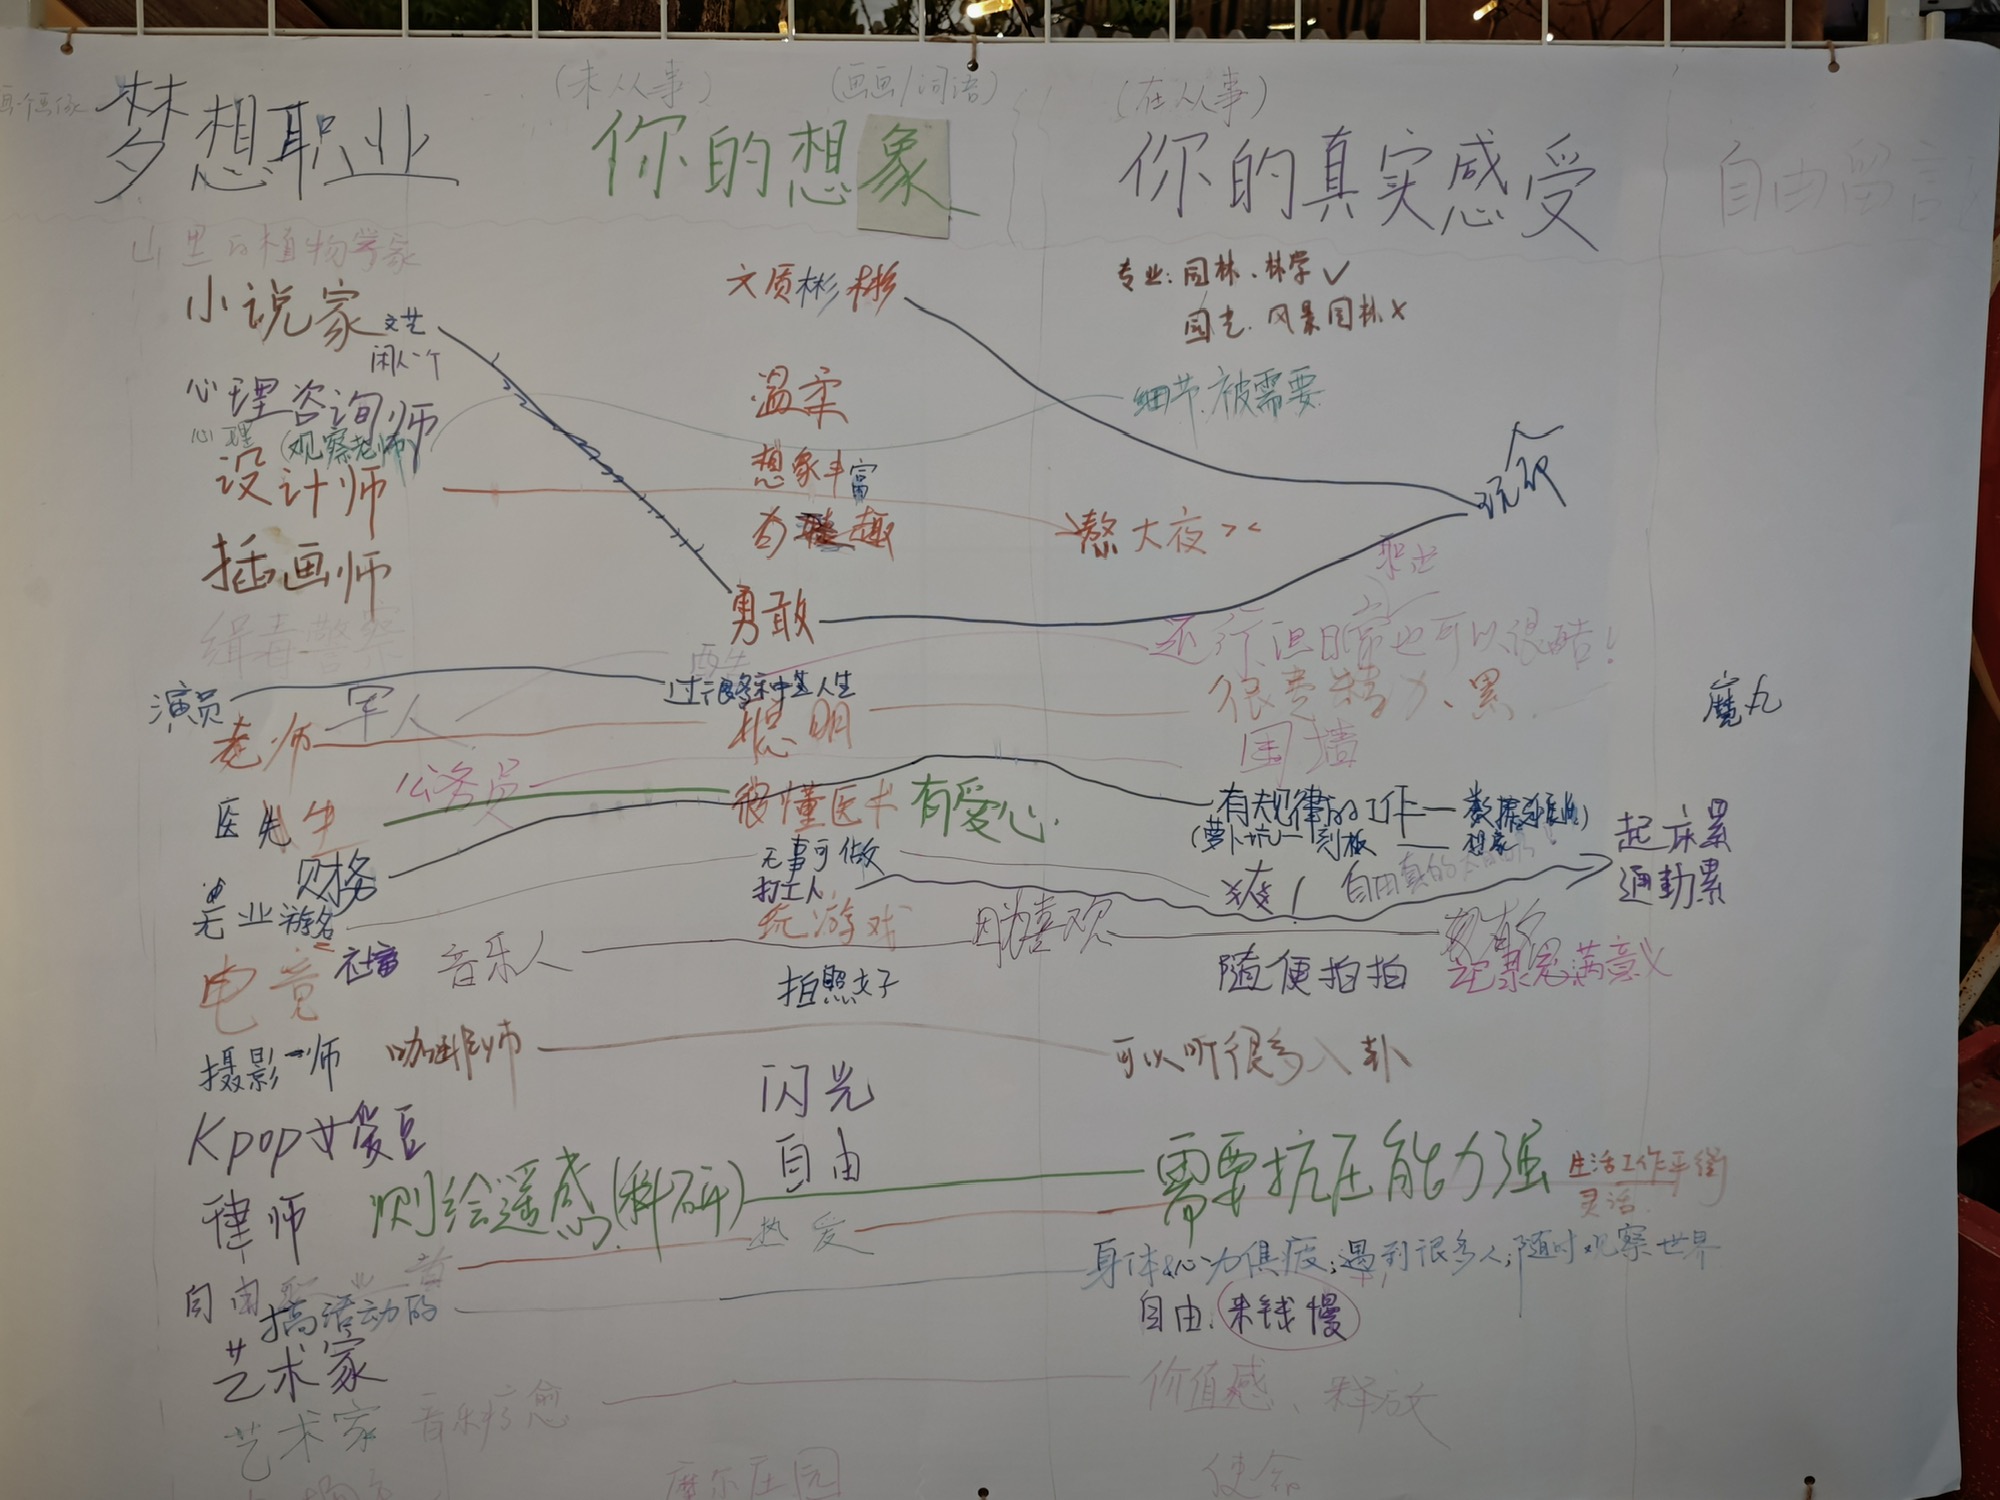 (未从事) (画画/词语) (在从事)
梦想职业 你的想象 你的真实感受 自由留言
山里的植物学家
小说家 文艺 文质彬彬 专业:园林、林学✓
闲人一个 园艺.风景园林×
心理咨询师 温柔 细节.被需要
心理 (观察老师)
设计师 想象丰富
有趣 熬大夜><
插画师
勇敢 职业
缉毒警察 还行但日常也可以很酷!
演员 军人 酷 过很多种人生 很费精力、累 魔丸
老师 聪明 围墙
公务员
医生 很懂医术 有爱心 有规律的工作
财务 (萝卜坑—刻板
无事可做 起床累
无业游名 打工人 爽! 自由真的 通勤累
玩游戏 因为喜欢
电竞 社畜 音乐人 拍照好 随便拍拍
摄影师 咖啡师 可以听很多八卦
闪光
Kpop女爱豆 自由 需要抗压能力强 生活工作平衡
灵活
律师 测绘遥感(科研) 热爱
身体&心力俱疲;遇到很多人;随时观察世界
自由
搞活动的 自由.来钱慢
艺术家 价值感、释放
艺术家 音乐疗愈
摩尔庄园 使命